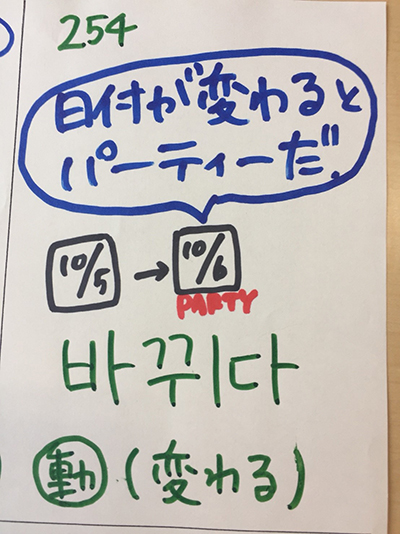 254
日付が変わると
パーティーだ.
10/5 → 10/6
PARTY
바뀌다
動 (変わる)